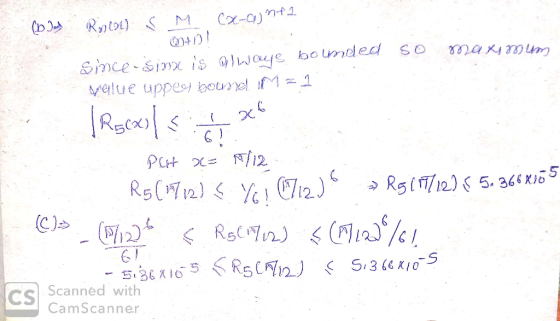 (b)⇒ Rn(x) ≤ M/(n+1)! (x-a)^n+1
Since sinx is always bounded so maximum
value upper bound M = 1
|R5(x)| ≤ 1/6! x^6
Put x = π/12
R5(π/12) ≤ 1/6! (π/12)^6 ⇒ R5(π/12) ≤ 5.366×10^-5
(C)⇒ - (π/12)^6/6! ≤ R5(π/12) ≤ (π/12)^6/6!
- 5.36×10^-5 ≤ R5(π/12) ≤ 5.366×10^-5
CS Scanned with
CamScanner